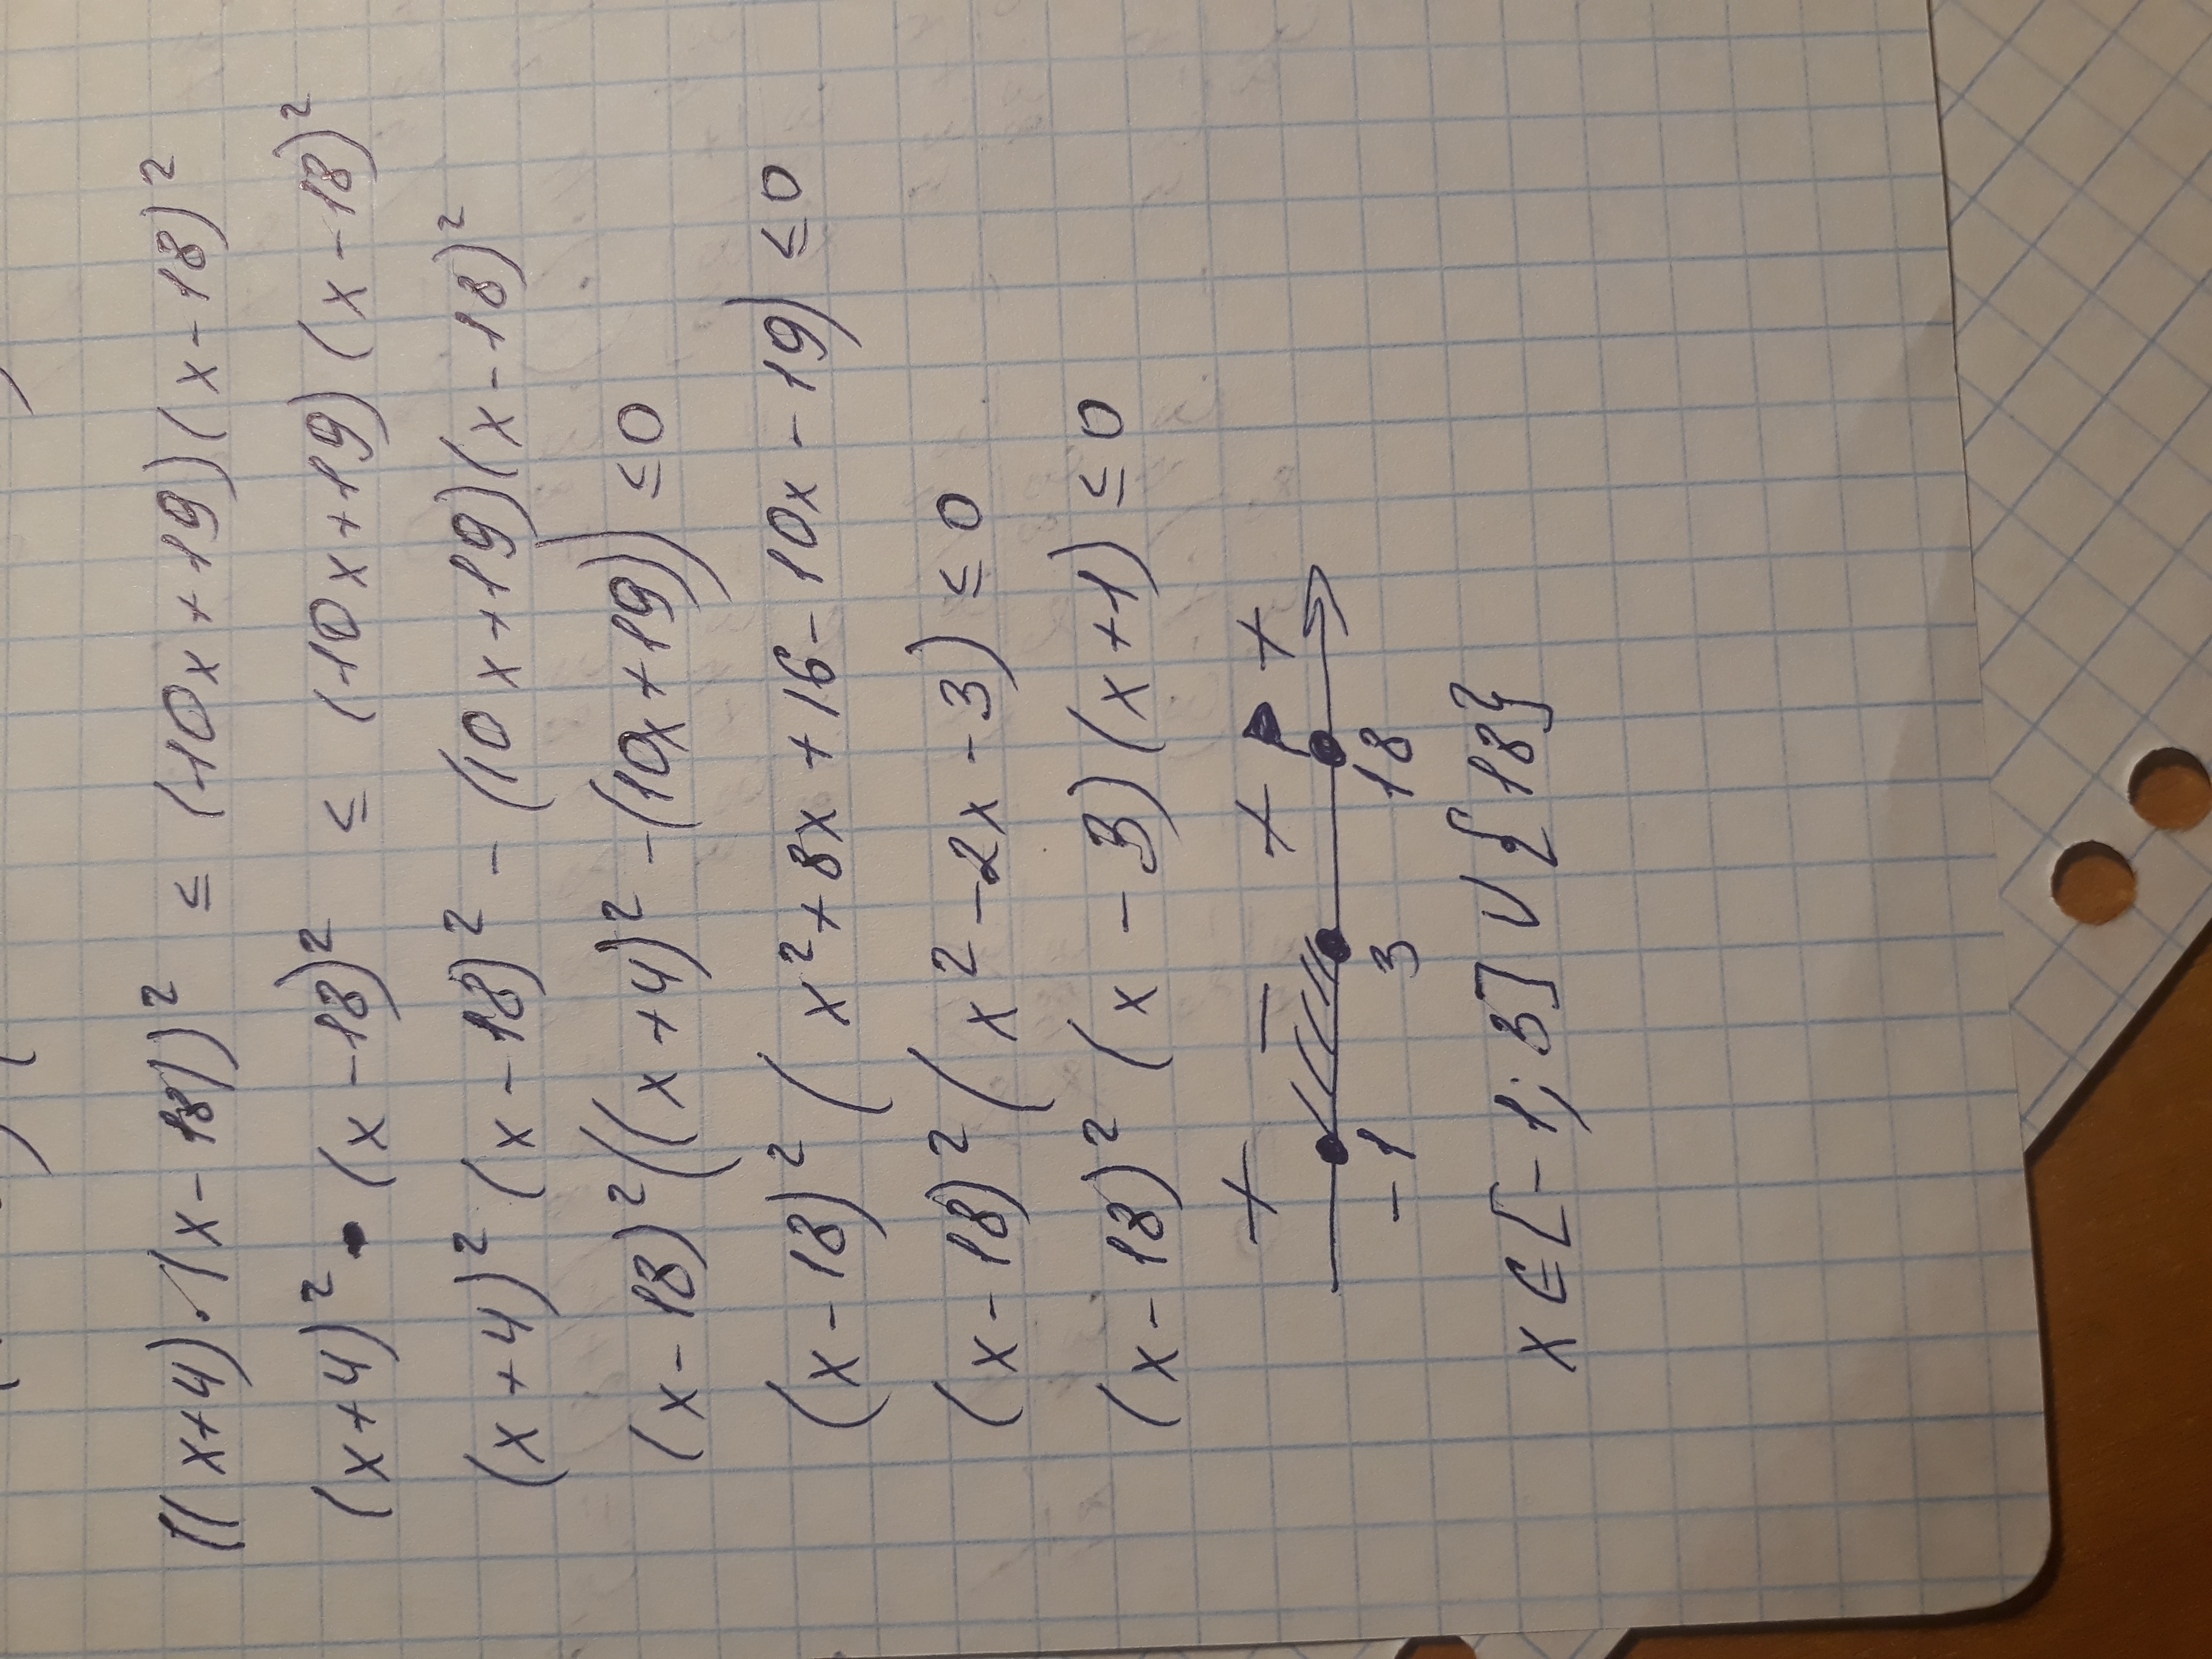 ((x+4)·(x-18))² ≤ (10x+19)(x-18)²
(x+4)²·(x-18)² ≤ (10x+19)(x-18)²
(x+4)²(x-18)² - (10x+19)(x-18)²
(x-18)²((x+4)² -(10x+19)) ≤0
(x-18)²(x²+8x+16-10x-19) ≤0
(x-18)²(x²-2x-3) ≤0
(x-18)²(x-3)(x+1) ≤0
+ - + +
-1 3 18
x∈[-1;3]∪{18}